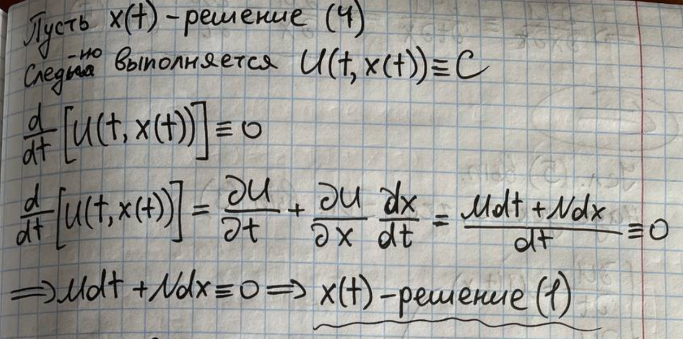 Пусть x(t) - решение (4)
След-но выполняется U(t, x(t)) ≡ C
d/dt [U(t, x(t))] ≡ 0
d/dt [U(t, x(t))] = ∂U/∂t + ∂U/∂x dx/dt = Mdt + Ndx/dt ≡ 0
⟹ Mdt + Ndx ≡ 0 ⟹ x(t) - решение (1)